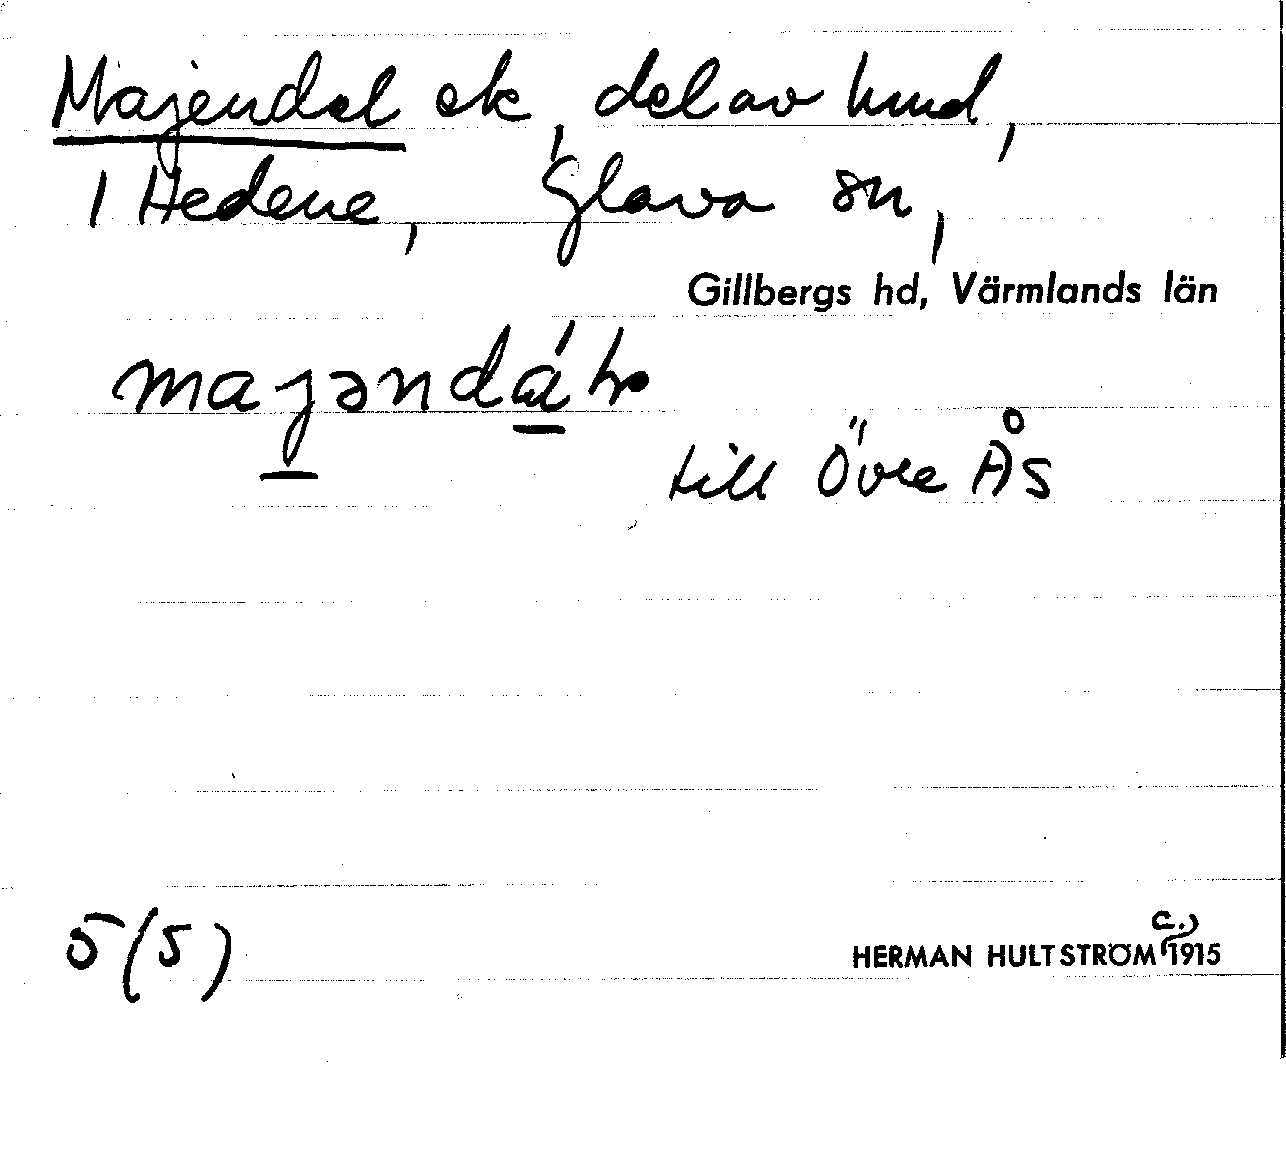 Majendal ek, del av hmd,
1 Hedene, Glava sn,
Gillbergs hd, Värmlands län
till Övre Ås
5 (5)
HERMAN HULTSTRÖM c.) 1915